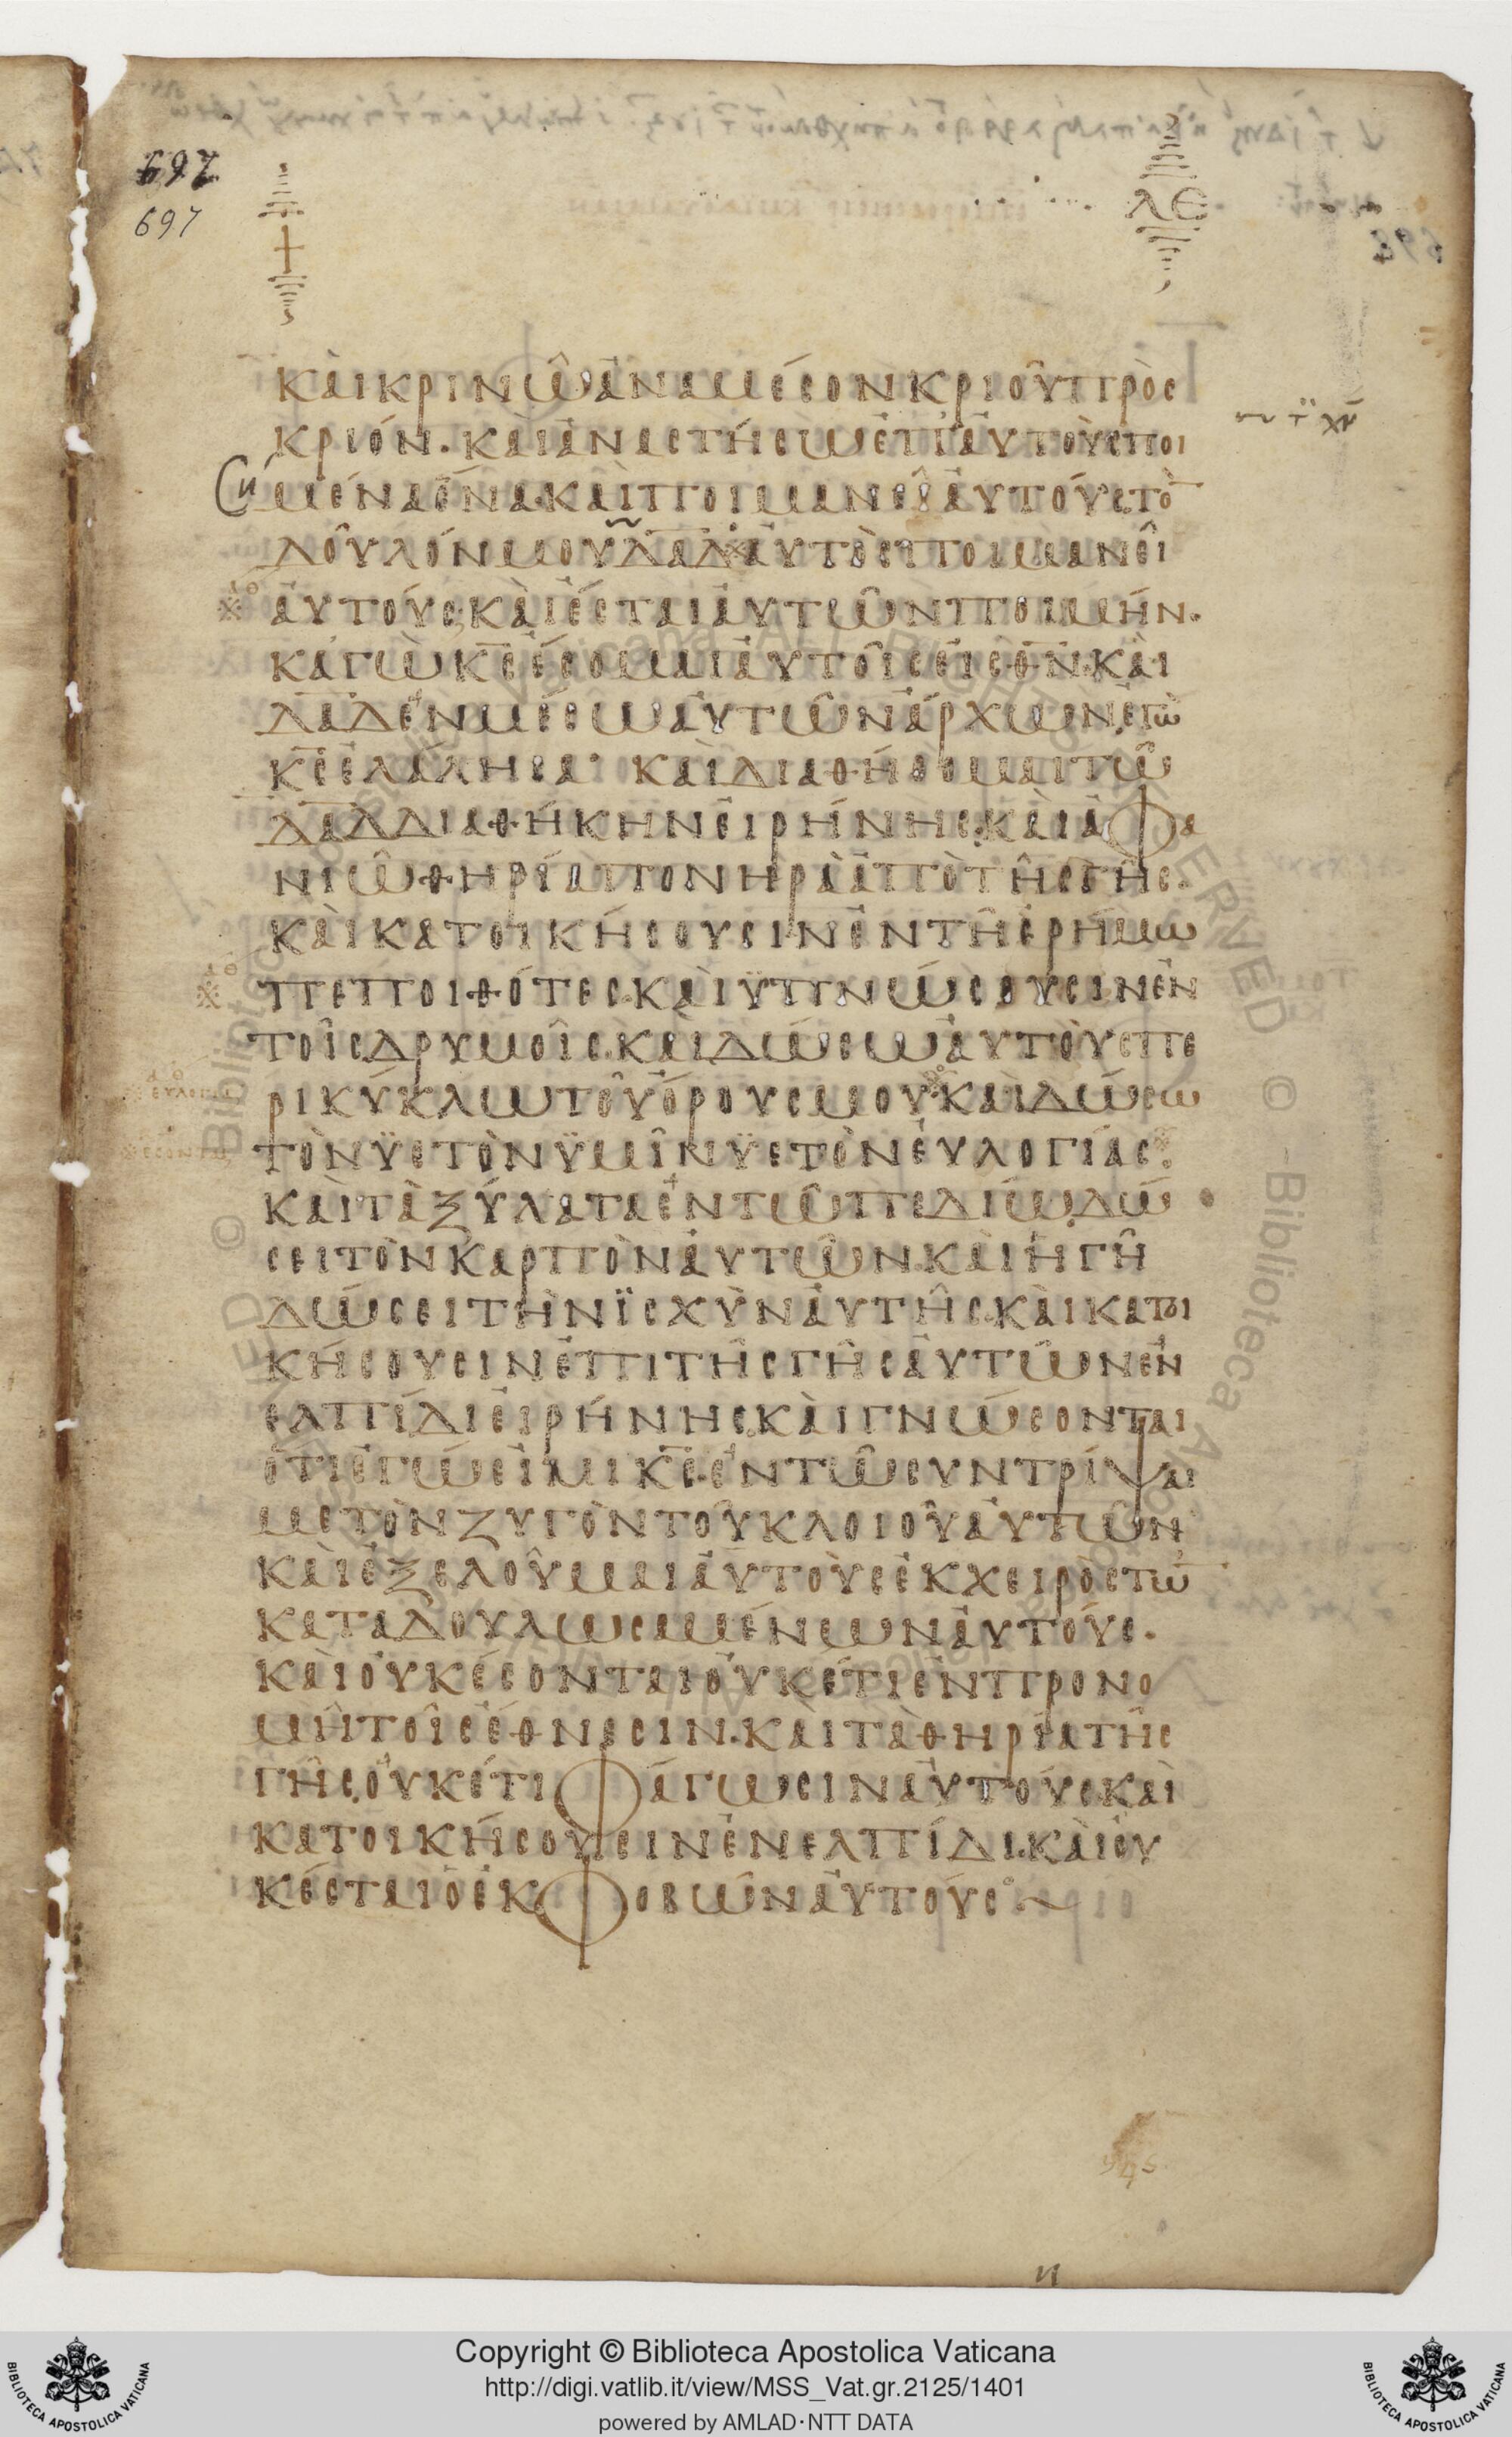 697
697
ΛΕ
ΚΑΙ ΚΡΙΝΩ ΑΝΑ ΜΕΣΟΝ ΚΡΙΟΥ ΠΡΟΣ
ΚΡΙΟΝ· ΚΑΙ ΑΝΑΣΤΗΣΩ ΕΠ ΑΥΤΟΥΣ ΠΟΙ
ΜΕΝΑ ΕΝΑ· ΚΑΙ ΠΟΙΜΑΝΕΙ ΑΥΤΟΥΣ ΤΟ̅
ΔΟΥΛΟΝ ΜΟΥ Δ̅Α̅Δ̅ ΑΥΤΟΣ ΠΟΙΜΑΝΕΙ
ΑΥΤΟΥΣ· ΚΑΙ ΕΣΤΑΙ ΑΥΤΩΝ ΠΟΙΜΗΝ·
ΚΑΓΩ Κ̅Σ̅ ΕΣΟΜΑΙ ΑΥΤΟΙΣ ΕΙΣ Θ̅Ν̅· ΚΑΙ
Δ̅Α̅Δ̅ ΕΝ ΜΕΣΩ ΑΥΤΩΝ ΑΡΧΩΝ· ΕΓΩ
Κ̅Σ̅ ΕΛΑΛΗΣΑ· ΚΑΙ ΔΙΑΘΗΣΟΜΑΙ ΤΩ
Δ̅Α̅Δ̅ ΔΙΑΘΗΚΗΝ ΕΙΡΗΝΗΣ· ΚΑΙ ΑΦΑ
ΝΙΩ ΘΗΡΙΑ ΠΟΝΗΡΑ ΑΠΟ ΤΗΣ ΓΗΣ·
ΚΑΙ ΚΑΤΟΙΚΗΣΟΥΣΙΝ ΕΝ ΤΗ ΕΡΗΜΩ
ΠΕΠΟΙΘΟΤΕΣ· ΚΑΙ ΫΠΝΩΣΟΥΣΙΝ ΕΝ
ΤΟΙΣ ΔΡΥΜΟΙΣ· ΚΑΙ ΔΩΣΩ ΑΥΤΟΥΣ ΠΕ
ΡΙΚΥΚΛΩ ΤΟΥ ΟΡΟΥΣ ΜΟΥ· ΚΑΙ ΔΩΣΩ
ΤΟΝ ΫΕΤΟΝ ΫΜΙΝ ΫΕΤΟΝ ΕΥΛΟΓΙΑΣ·
ΚΑΙ ΤΑ ΞΥΛΑ ΤΑ ΕΝ ΤΩ ΠΕΔΙΩ ΔΩ
ΣΕΙ ΤΟΝ ΚΑΡΠΟΝ ΑΥΤΩΝ· ΚΑΙ Η ΓΗ
ΔΩΣΕΙ ΤΗΝ ΪΣΧΥΝ ΑΥΤΗΣ· ΚΑΙ ΚΑΤΟΙ
ΚΗΣΟΥΣΙΝ ΕΠΙ ΤΗΣ ΓΗΣ ΑΥΤΩΝ ΕΝ
ΕΛΠΙΔΙ ΕΙΡΗΝΗΣ· ΚΑΙ ΓΝΩΣΟΝΤΑΙ
ΟΤΙ ΕΓΩ ΕΙΜΙ Κ̅Σ̅· ΕΝ ΤΩ ΣΥΝΤΡΙΨΑΙ
ΜΕ ΤΟΝ ΖΥΓΟΝ ΤΟΥ ΚΛΟΙΟΥ ΑΥΤΩΝ
ΚΑΙ ΕΞΕΛΟΥΜΑΙ ΑΥΤΟΥΣ ΕΚ ΧΕΙΡΟΣ ΤΩ̅
ΚΑΤΑΔΟΥΛΩΣΑΜΕΝΩΝ ΑΥΤΟΥΣ·
ΚΑΙ ΟΥΚ ΕΣΟΝΤΑΙ ΟΥΚΕΤΙ ΕΝ ΠΡΟΝΟ
ΜΗ ΤΟΙΣ ΕΘΝΕΣΙΝ· ΚΑΙ ΤΑ ΘΗΡΙΑ ΤΗΣ
ΓΗΣ ΟΥΚΕΤΙ ΦΑΓΩΣΙΝ ΑΥΤΟΥΣ· ΚΑΙ
ΚΑΤΟΙΚΗΣΟΥΣΙΝ ΕΝ ΕΛΠΙΔΙ· ΚΑΙ ΟΥ
Κ ΕΣΤΑΙ Ο ΕΚΦΟΒΩΝ ΑΥΤΟΥΣ·
Copyright © Biblioteca Apostolica Vaticana
http://digi.vatlib.it/view/MSS_Vat.gr.2125/1401
powered by AMLAD·NTT DATA
BIBLIOTECA APOSTOLICA VATICANA
BIBLIOTECA APOSTOLICA VATICANA